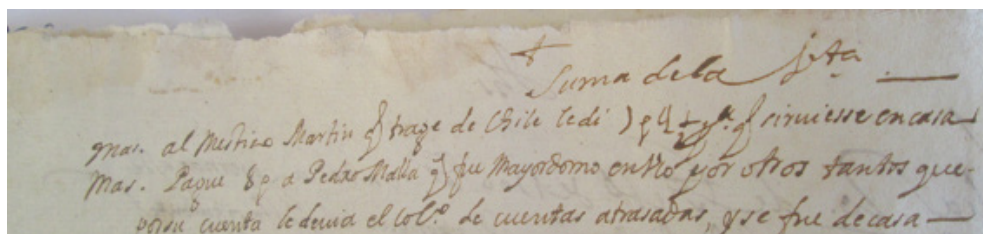 Suma de la Jta
mas. al Mestizo Martin q traxe de Chile le di p q sirviesse en casa
Mas. Pague 8 p a Pedro Malla q fue Mayordomo en Ylo por otros tantos que
por su cuenta le devia el Col.o de cuentas atrasadas, y se fue de casa